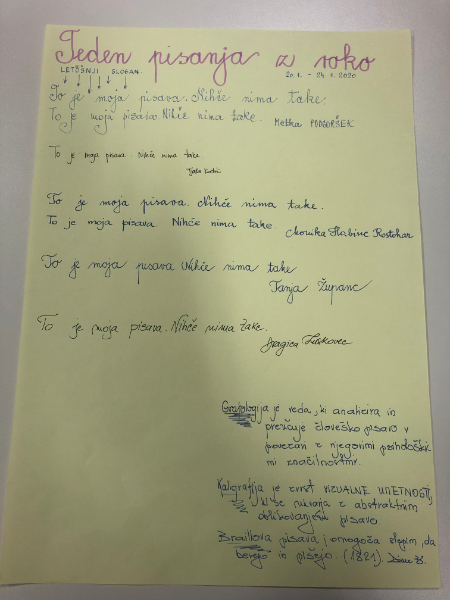 Teden pisanja z roko
LETOŠNJI SLOGAN
20.1. - 24.1.2020
To je moja pisava. Nihče nima take.
To je moja pisava. Nihče nima take. Metka PODGORŠEK
To je moja pisava. Nihče nima take.
To je moja pisava. Nihče nima take.
To je moja pisava. Nihče nima take. Monika Slabinc Rostohar
To je moja pisava. Nihče nima take
Tanja Županc
To je moja pisava. Nihče nima take.
Dragica
Grafologija je veda, ki analizira in
preučuje človeško pisavo v
povezavi z njegovimi psihološki-
mi značilnostmi.
Kaligrafija je zvrst VIZUALNE UMETNOSTI,
ki se ukvarja z abstraktnim
oblikovanjem pisave.
Braillova pisava omogoča slepim, da
berejo in pišejo. (1821)